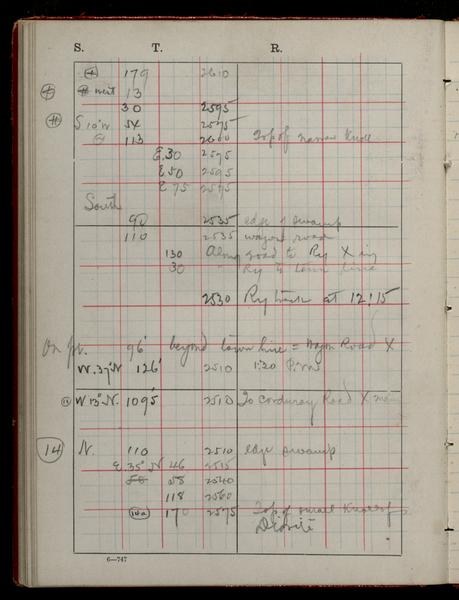 S. T. R.
179 2610
west 13
30 2595
S 10° W 54 2575
113 2600 Top of narrow Knoll
E 30 2575
E 50 2595
E 75 2595
South
90 2535 edge of swamp
110 2535 wagon road
130 Along road to Ry X ing
30 Ry to town line
2530 Ry track at 12:15
On 96' beyond town line = Wagon Road X
W. 37° N 126' 2510 1:20 P.M.
W 13° N. 1095' 2510 To corduroy Road X
14 N. 110 2510 edge swamp
E 35° N 46 2515
58 58 2540
118 2560
14a 170 2575 Top of small Knoll of
Diorite
6-747